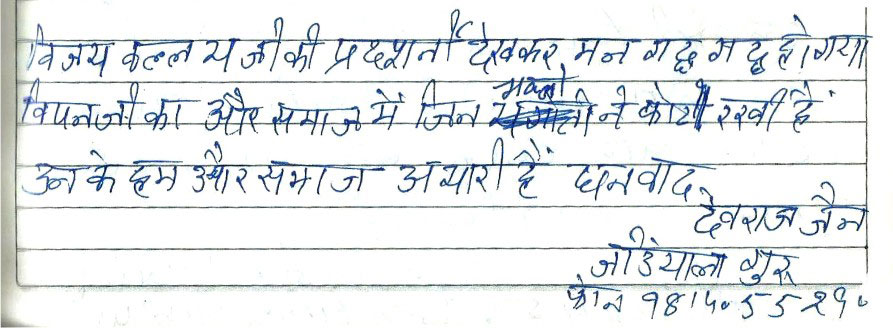 विजय वल्लभ जी की प्रदर्शनी देखकर मन गद्ध गद्ध हो गया
विपनजी का और समाज में जिन भक्तो ने फोटो रखी हैं
उनके हम और समाज अभारी हैं धनवाद
देवराज जैन
जंडियाला गुरू
फोन 98140 55290